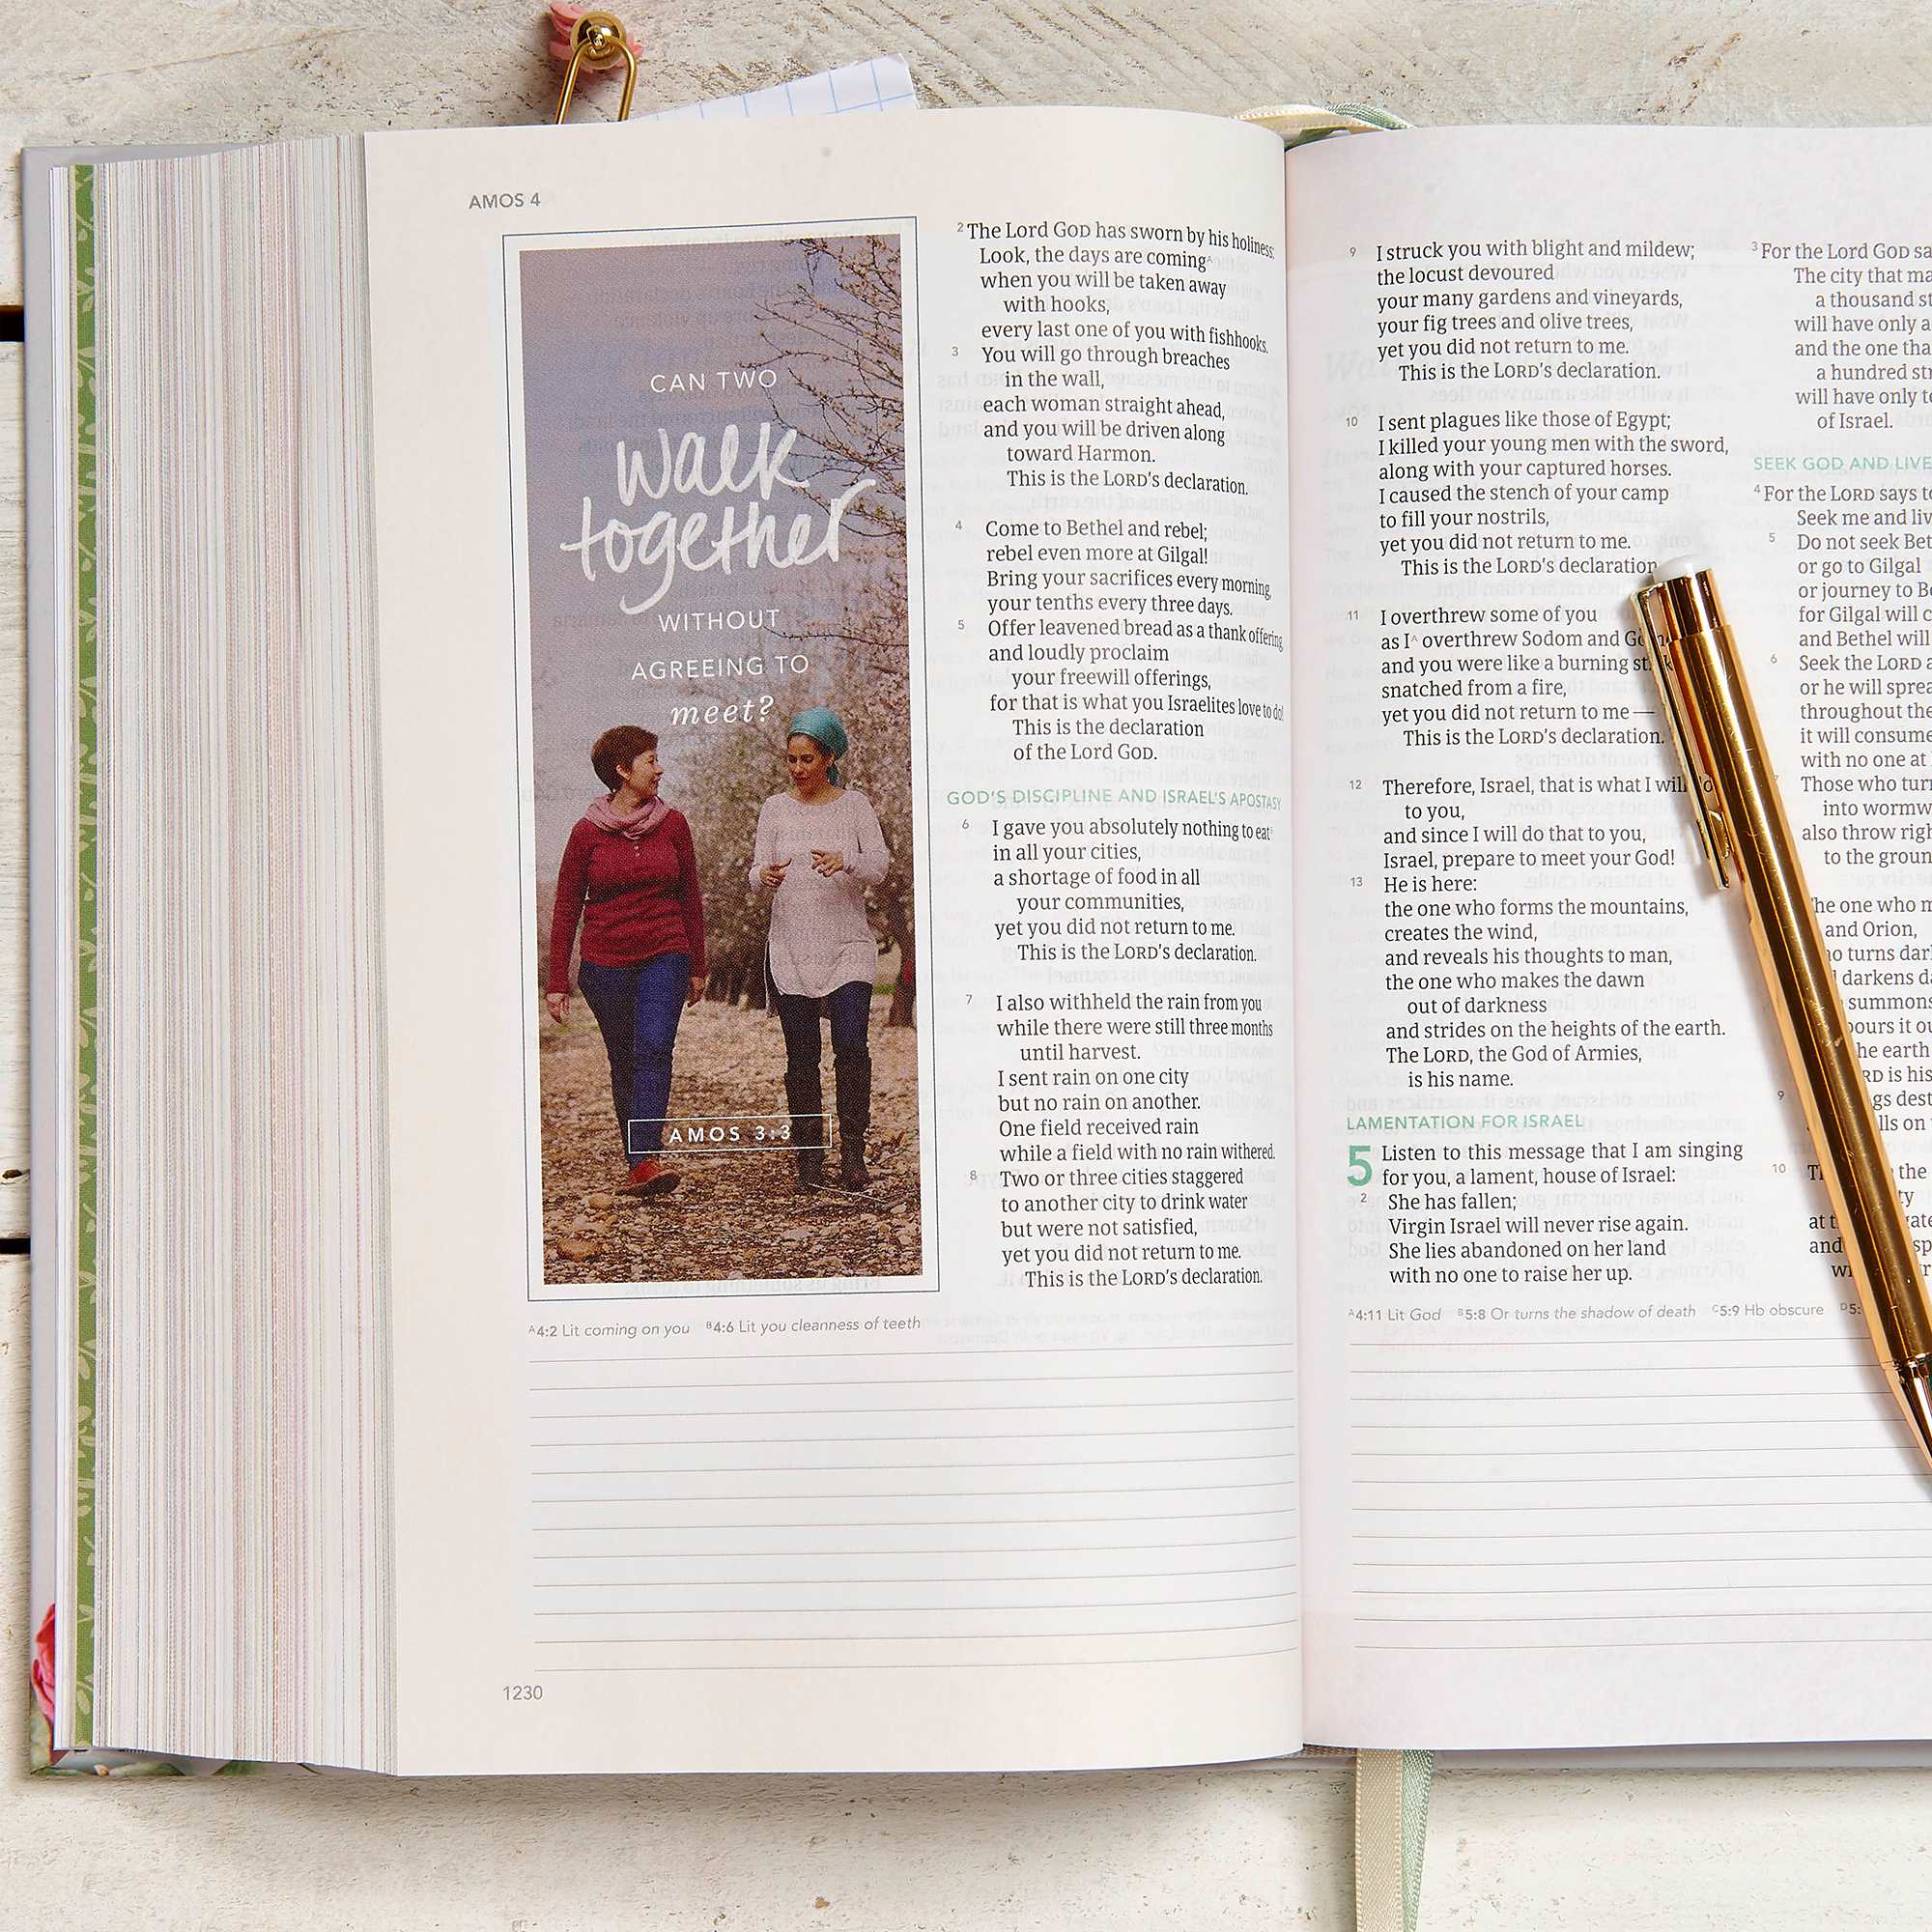 AMOS 4
CAN TWO
walk
together
WITHOUT
AGREEING TO
meet?
AMOS 3:3
2 The Lord GOD has sworn by his holiness:
Look, the days are coming^A
when you will be taken away
with hooks,
every last one of you with fishhooks.
3 You will go through breaches
in the wall,
each woman straight ahead,
and you will be driven along
toward Harmon.
This is the LORD's declaration.
4 Come to Bethel and rebel;
rebel even more at Gilgal!
Bring your sacrifices every morning,
your tenths every three days.
5 Offer leavened bread as a thank offering,
and loudly proclaim
your freewill offerings,
for that is what you Israelites love to do!
This is the declaration
of the Lord GOD.
GOD'S DISCIPLINE AND ISRAEL'S APOSTASY
6 I gave you absolutely nothing to eat
in all your cities,
a shortage of food in all
your communities,
yet you did not return to me.
This is the LORD's declaration.
7 I also withheld the rain from you
while there were still three months
until harvest.
I sent rain on one city
but no rain on another.
One field received rain
while a field with no rain withered.
8 Two or three cities staggered
to another city to drink water
but were not satisfied,
yet you did not return to me.
This is the LORD's declaration.
A4:2 Lit coming on you B4:6 Lit you cleanness of teeth
1230
9 I struck you with blight and mildew;
the locust devoured
your many gardens and vineyards,
your fig trees and olive trees,
yet you did not return to me.
This is the LORD's declaration.
10 I sent plagues like those of Egypt;
I killed your young men with the sword,
along with your captured horses.
I caused the stench of your camp
to fill your nostrils,
yet you did not return to me.
This is the LORD's declaration
11 I overthrew some of you
as I^A overthrew Sodom and
and you were like a burning
snatched from a fire,
yet you did not return to me —
This is the LORD's declaration.
12 Therefore, Israel, that is what I will
to you,
and since I will do that to you,
Israel, prepare to meet your God!
13 He is here:
the one who forms the mountains,
creates the wind,
and reveals his thoughts to man,
the one who makes the dawn
out of darkness
and strides on the heights of the earth.
The LORD, the God of Armies,
is his name.
LAMENTATION FOR ISRAEL
5 Listen to this message that I am singing
for you, a lament, house of Israel:
2 She has fallen;
Virgin Israel will never rise again.
She lies abandoned on her land
with no one to raise her up.
A4:11 Lit God B5:8 Or turns the shadow of death C5:9 Hb obscure D5:
3 For the Lord GOD
The city that
a thousand
will have only
and the one
a hundred
will have only
of Israel.
SEEK GOD AND LIVE
4 For the LORD says
Seek me and
5 Do not seek
or go to Gilgal
or journey to
for Gilgal will
and Bethel will
6 Seek the LORD
or he will
throughout
it will consume
with no one at
Those who
into
also throw
to the
one who
and Orion,
turns
darkens
summons
pours it
earth
is his
9
on
10 the
at
and